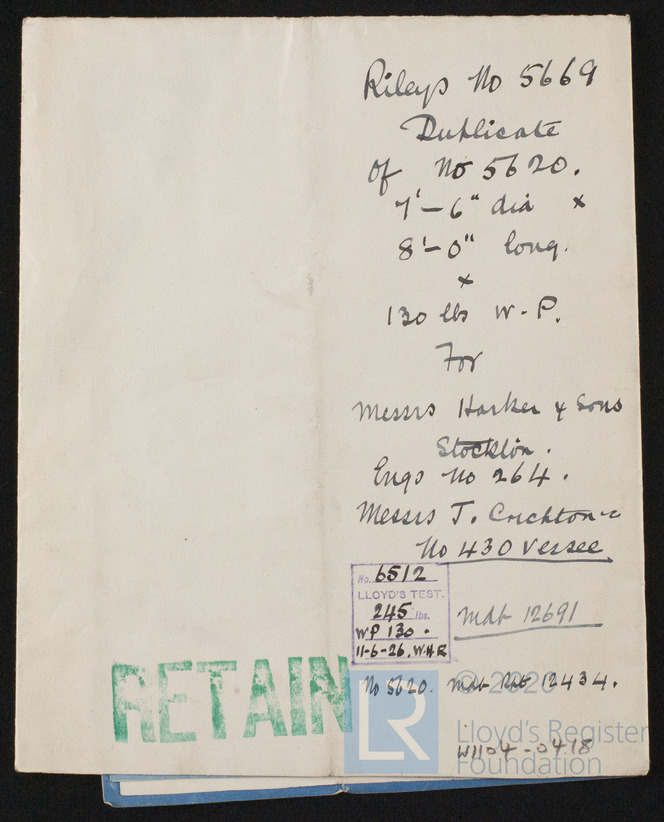 Rileys No 5669
Duplicate
of No 5620.
7'-6" dia x
8'-0" long.
x
130 lbs W-P.
For
Messrs Harker & Sons
Stockton.
Engs No 264.
Messrs J. Crichton
No 430 Vessee
No. 6512
LLOYD'S TEST.
245 lbs.
WP 130.
11-6-26. W.H.R
Mdb 12691
RETAIN
No 5620. Mdb Rpt 12434.
LR
© 2020
Lloyd's Register
Foundation
W1104-0418